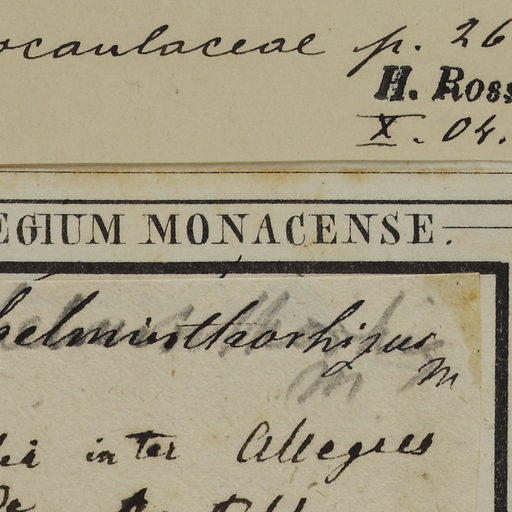 ocaulaceae p. 26
H. Ross
X. 04.
EGIUM MONACENSE.
helminthorhizus
M
inter Allegres